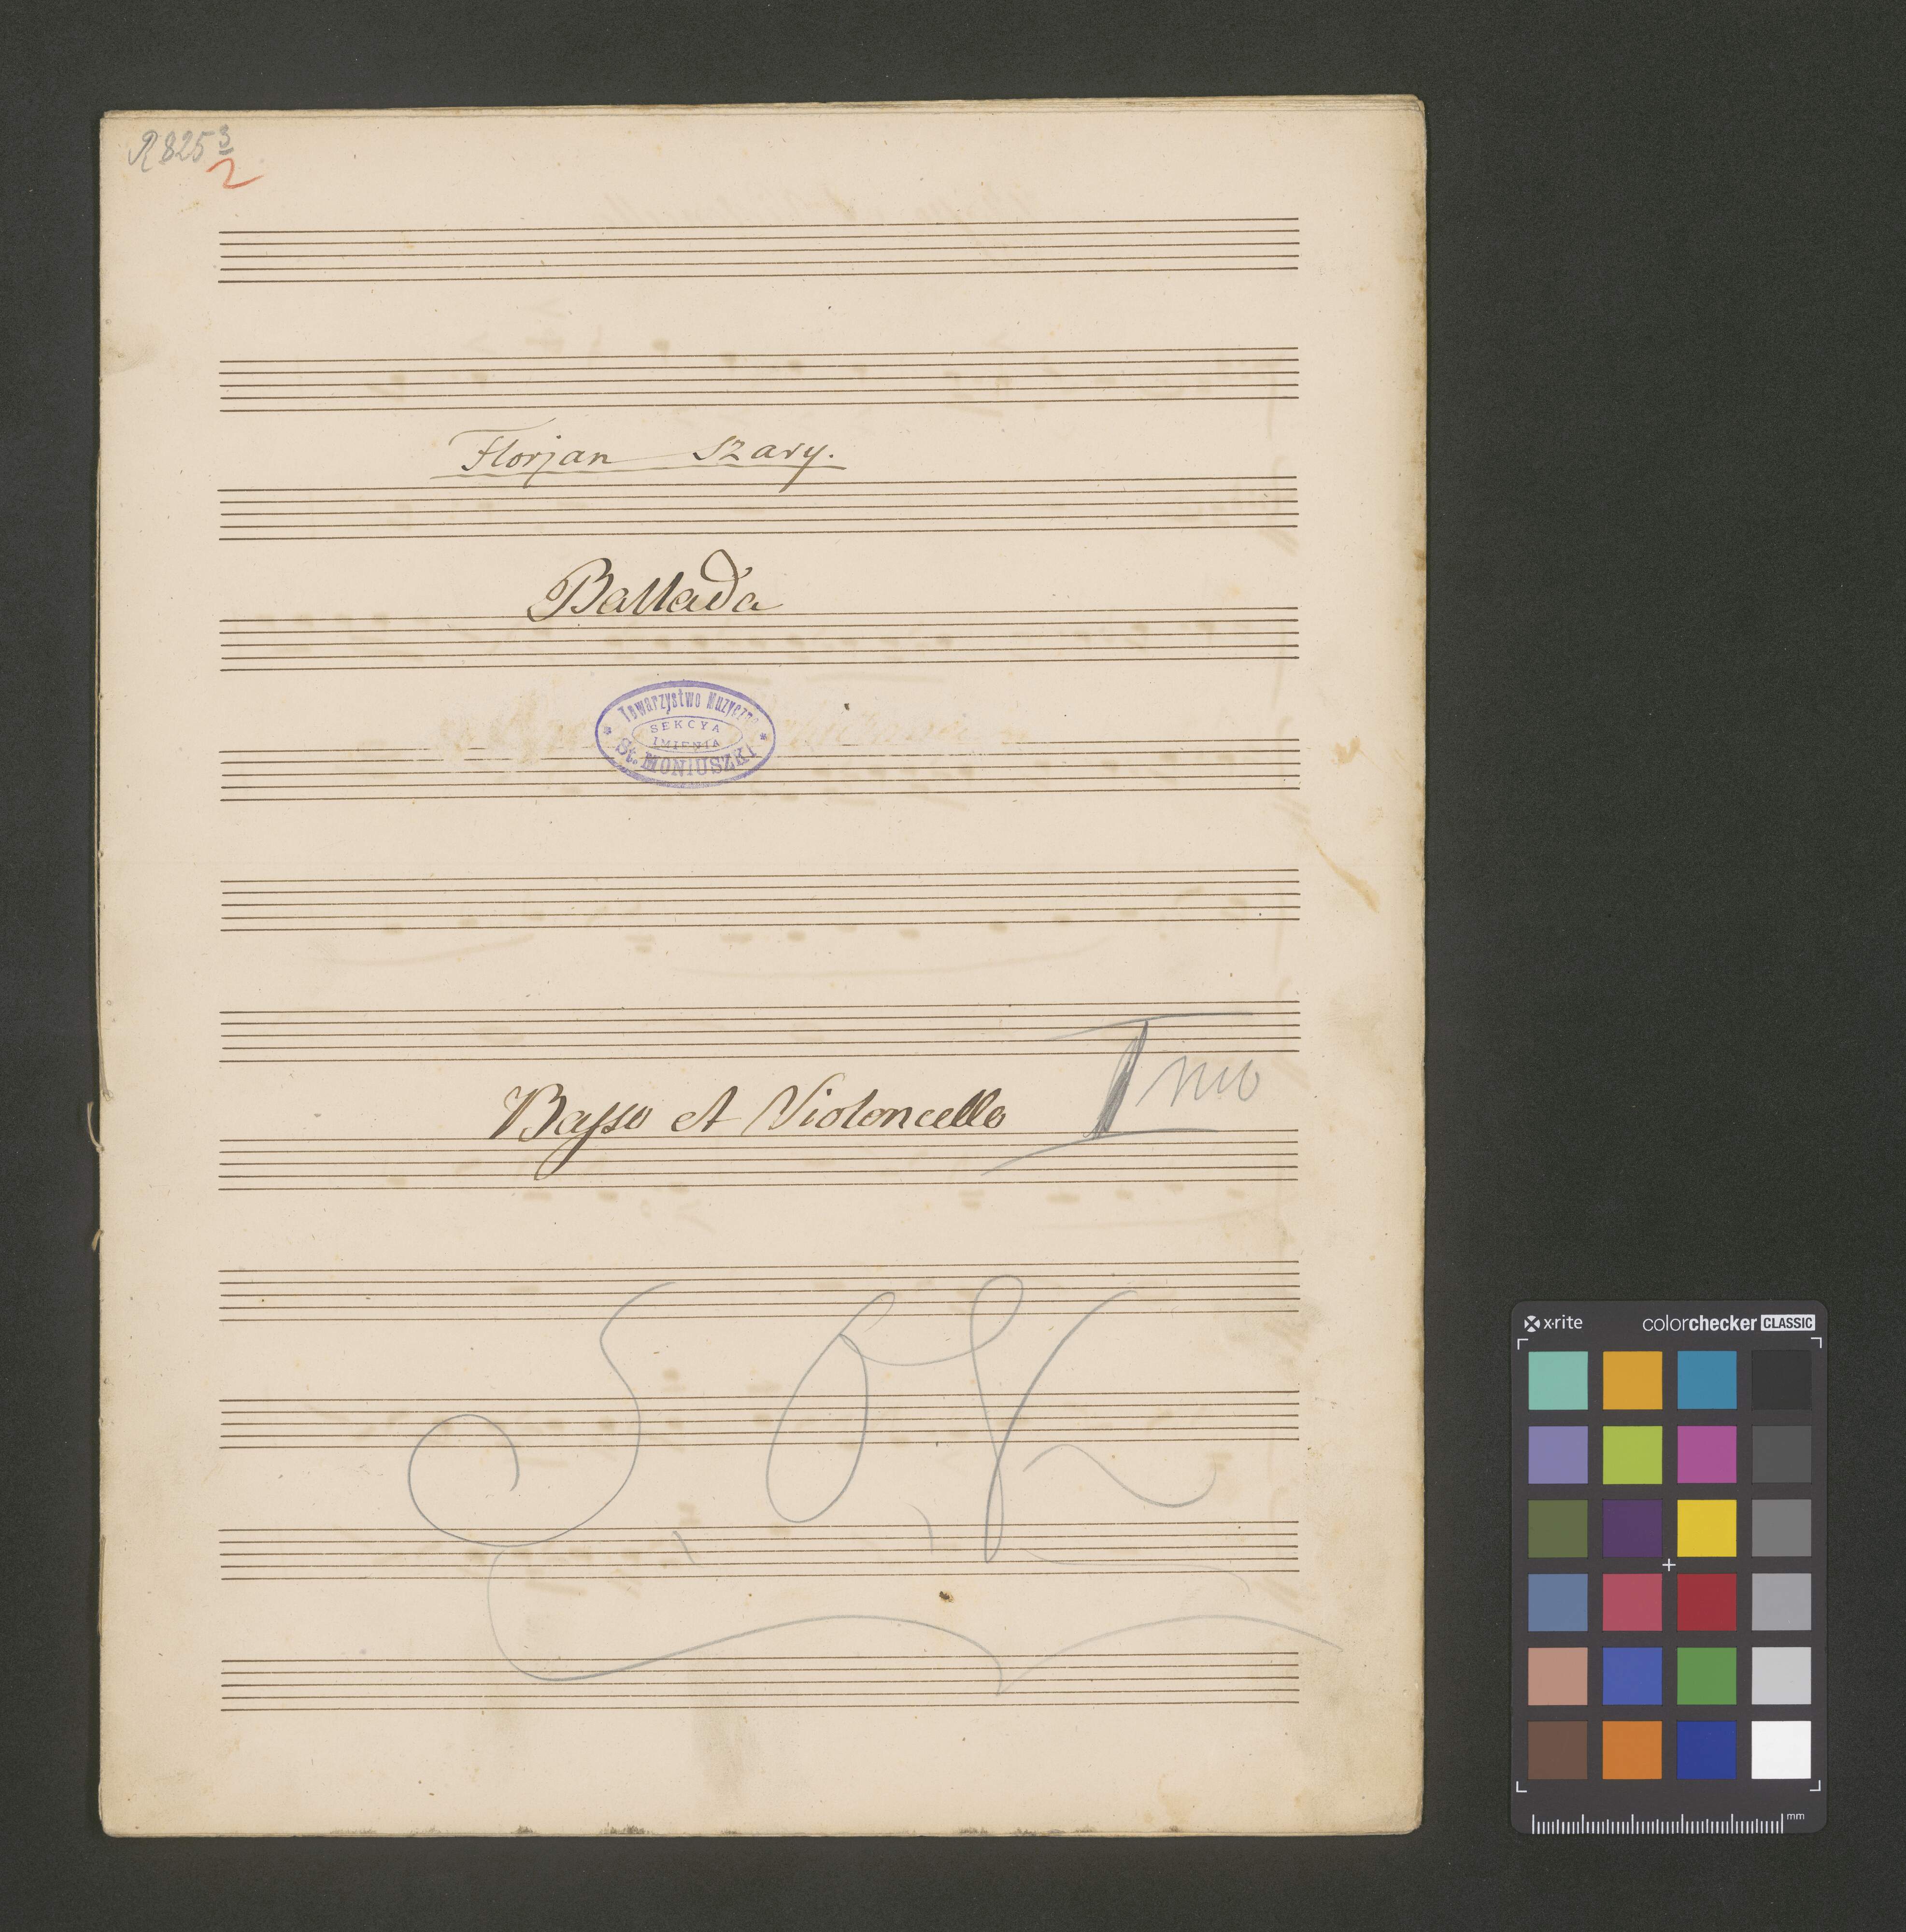 R 825 3
2
Florjan Szary.
Ballada
Towarzystwo Muzyczne
SEKCYA
IMIENIA
St. MONIUSZKI
Basso et Violoncello Imo
x-rite colorchecker CLASSIC
mm